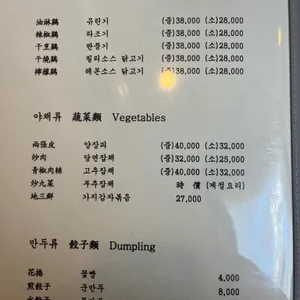 油淋鷄 유린기 (중)38,000 (소)28,000
辣椒鷄 라조기 (중)38,000 (소)28,000
干烹鷄 깐풍기 (중)38,000 (소)28,000
干燒鷄 칠리소스 닭고기 (중)38,000 (소)28,000
檸檬鷄 레몬소스 닭고기 (중)38,000 (소)28,000
야채류 蔬菜類 Vegetables
兩張皮 양장피 (중)40,000 (소)32,000
炒肉 당면잡채 (중)32,000 (소)25,000
青椒肉絲 고추잡채 (중)40,000 (소)32,000
炒九菜 부추잡채 時價 (계절요리)
地三鮮 가지감자볶음 27,000
만두류 餃子類 Dumpling
花捲 꽃빵 4,000
煎餃子 군만두 8,000
水餃子